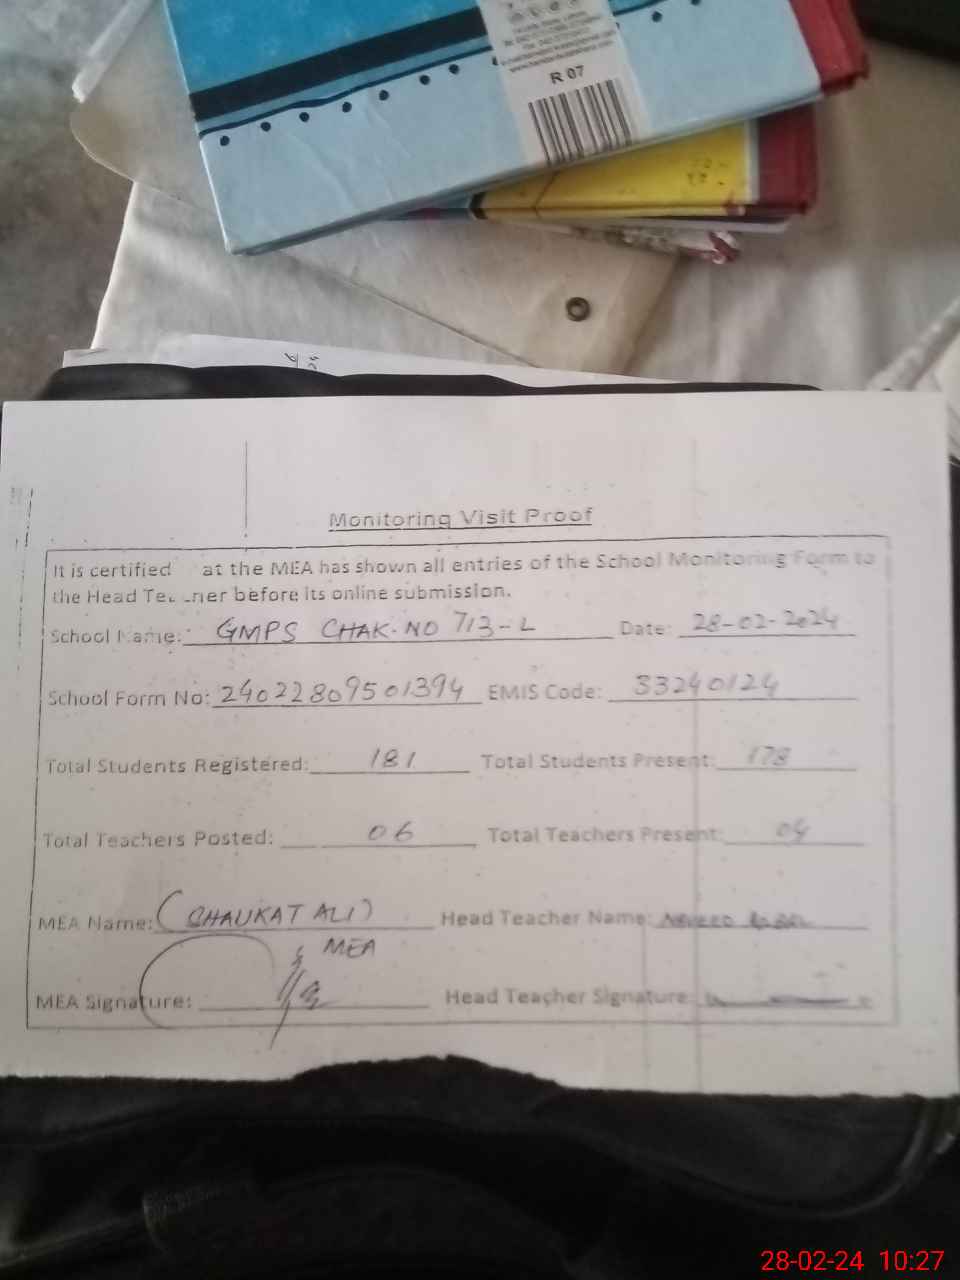 R 07
Monitoring Visit Proof
It is certified at the MEA has shown all entries of the School Monitoring Form to
the Head before its online submission.
School Name: GMPS CHAK. NO 713-L Date: 28-02-2024
School Form No: 24022809501394 EMIS Code: 33240124
Total Students Registered: 181 Total Students Present: 178
Total Teachers Posted: 06 Total Teachers Present: 04
MEA Name: (SHAUKAT ALI) Head Teacher Name:
MEA
MEA Signature: Head Teacher Signature:
28-02-24 10:27